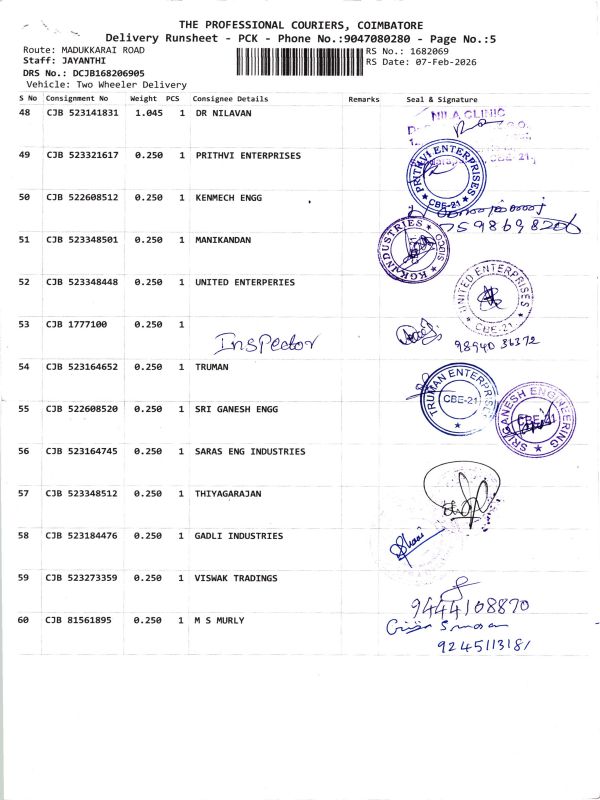 THE PROFESSIONAL COURIERS, COIMBATORE
Delivery Runsheet - PCK - Phone No.:9047080280 - Page No.:5
Route: MADUKKARAI ROAD
Staff: JAYANTHI
DRS No.: DCJB168206905
Vehicle: Two Wheeler Delivery
RS No.: 1682069
RS Date: 07-Feb-2026
S No Consignment No Weight PCS Consignee Details Remarks Seal & Signature
48 CJB 523141831 1.045 1 DR NILAVAN
NILA CLINIC
49 CJB 523321617 0.250 1 PRITHVI ENTERPRISES
PRITHVI ENTERPRISES
CBE-21
50 CJB 522608512 0.250 1 KENMECH ENGG
7598698206
51 CJB 523348501 0.250 1 MANIKANDAN
KGK INDUSTRIES
SIDCO
52 CJB 523348448 0.250 1 UNITED ENTERPERIES
UNITED ENTERPRISES
CBE-21
53 CJB 1777100 0.250 1
Inspector
98940 36372
54 CJB 523164652 0.250 1 TRUMAN
TRUMAN ENTERPRISES
CBE-21
55 CJB 522608520 0.250 1 SRI GANESH ENGG
SRI GANESH ENGINEERING
CBE-21
56 CJB 523164745 0.250 1 SARAS ENG INDUSTRIES
57 CJB 523348512 0.250 1 THIYAGARAJAN
58 CJB 523184476 0.250 1 GADLI INDUSTRIES
59 CJB 523273359 0.250 1 VISWAK TRADINGS
9444108870
60 CJB 81561895 0.250 1 M S MURLY
9245113181